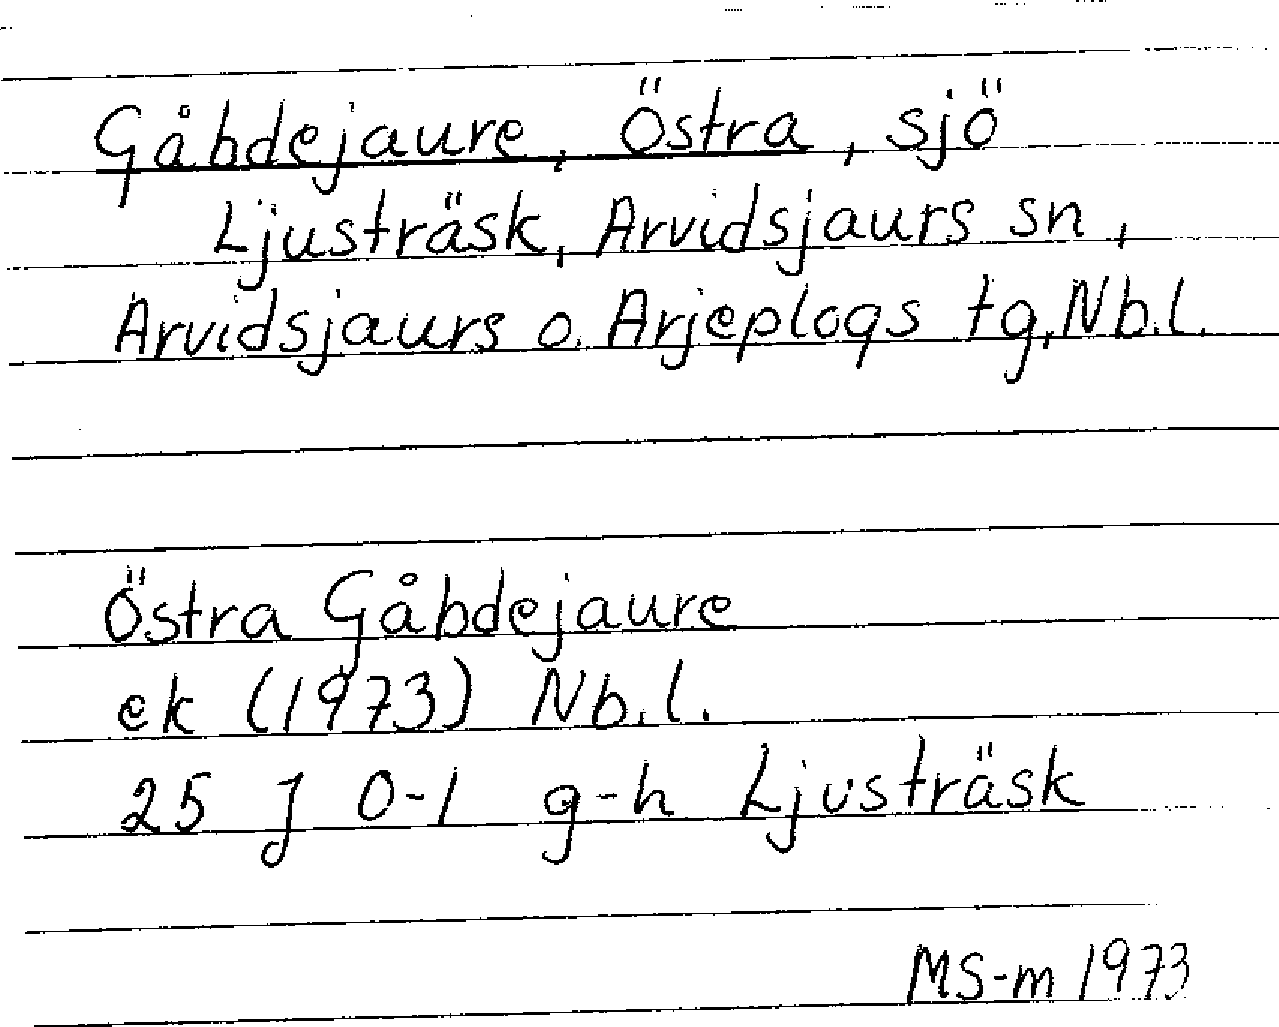 Gåbdejaure, Östra, sjö
Ljusträsk, Arvidsjaurs sn,
Arvidsjaurs o. Arjeplogs tg, Nb.l.
Östra Gåbdejaure
ek (1973) Nb.l.
25 J 0-1 g-h Ljusträsk
MS-m 1973